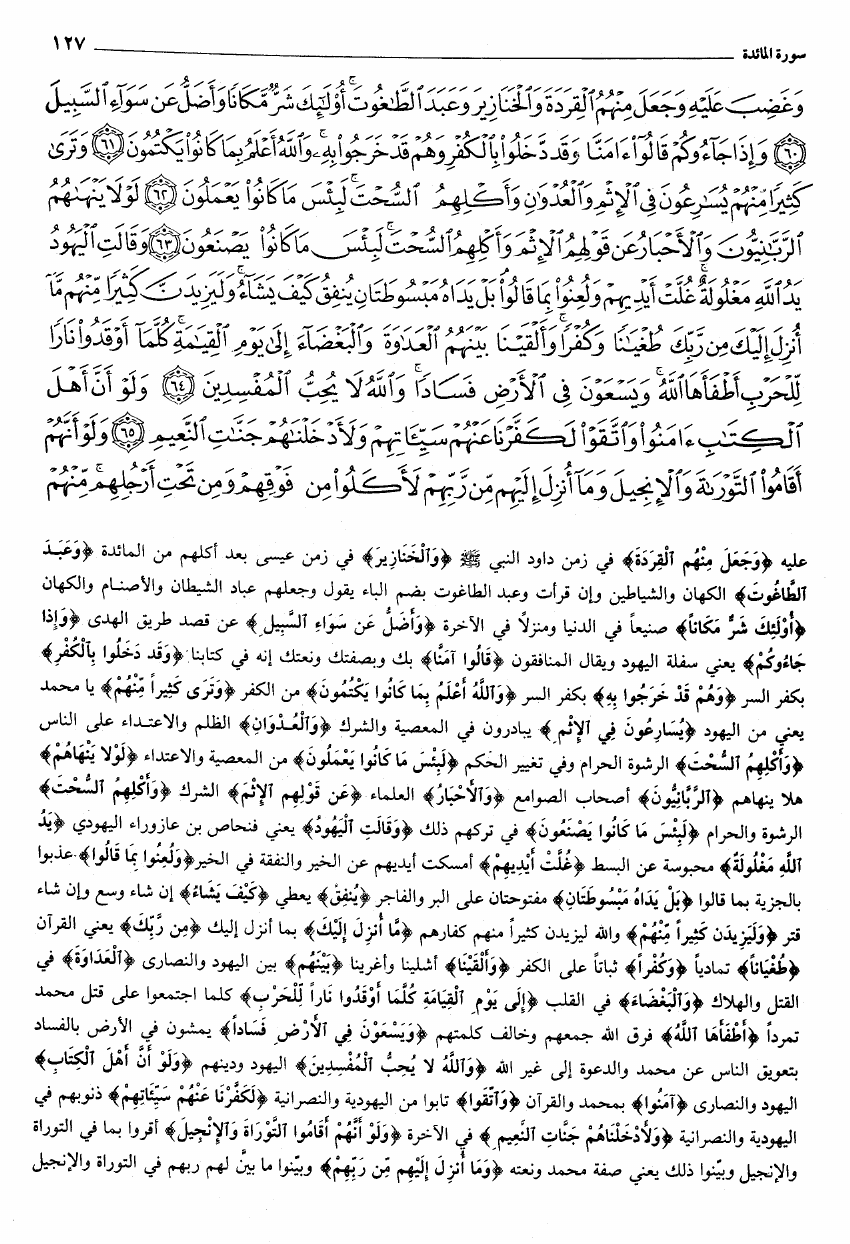 سورة المائدة ١٢٧
وَغَضِبَ عَلَيْهِ وَجَعَلَ مِنْهُمُ ٱلْقِرَدَةَ وَٱلْخَنَازِيرَ وَعَبَدَ ٱلطَّٰغُوتَ ۚ أُو۟لَٰٓئِكَ شَرٌّ مَّكَانًا وَأَضَلُّ عَن سَوَآءِ ٱلسَّبِيلِ
﴿٦٠﴾ وَإِذَا جَآءُوكُمْ قَالُوٓا۟ ءَامَنَّا وَقَد دَّخَلُوا۟ بِٱلْكُفْرِ وَهُمْ قَدْ خَرَجُوا۟ بِهِۦ ۚ وَٱللَّهُ أَعْلَمُ بِمَا كَانُوا۟ يَكْتُمُونَ ﴿٦١﴾ وَتَرَىٰ
كَثِيرًا مِّنْهُمْ يُسَٰرِعُونَ فِى ٱلْإِثْمِ وَٱلْعُدْوَٰنِ وَأَكْلِهِمُ ٱلسُّحْتَ ۚ لَبِئْسَ مَا كَانُوا۟ يَعْمَلُونَ ﴿٦٢﴾ لَوْلَا يَنْهَىٰهُمُ
ٱلرَّبَّٰنِيُّونَ وَٱلْأَحْبَارُ عَن قَوْلِهِمُ ٱلْإِثْمَ وَأَكْلِهِمُ ٱلسُّحْتَ ۚ لَبِئْسَ مَا كَانُوا۟ يَصْنَعُونَ ﴿٦٣﴾ وَقَالَتِ ٱلْيَهُودُ
يَدُ ٱللَّهِ مَغْلُولَةٌ ۚ غُلَّتْ أَيْدِيهِمْ وَلُعِنُوا۟ بِمَا قَالُوا۟ ۘ بَلْ يَدَاهُ مَبْسُوطَتَانِ يُنفِقُ كَيْفَ يَشَآءُ ۚ وَلَيَزِيدَنَّ كَثِيرًا مِّنْهُم مَّآ
أُنزِلَ إِلَيْكَ مِن رَّبِّكَ طُغْيَٰنًا وَكُفْرًا ۚ وَأَلْقَيْنَا بَيْنَهُمُ ٱلْعَدَٰوَةَ وَٱلْبَغْضَآءَ إِلَىٰ يَوْمِ ٱلْقِيَٰمَةِ ۚ كُلَّمَآ أَوْقَدُوا۟ نَارًا
لِّلْحَرْبِ أَطْفَأَهَا ٱللَّهُ ۚ وَيَسْعَوْنَ فِى ٱلْأَرْضِ فَسَادًا ۚ وَٱللَّهُ لَا يُحِبُّ ٱلْمُفْسِدِينَ ﴿٦٤﴾ وَلَوْ أَنَّ أَهْلَ
ٱلْكِتَٰبِ ءَامَنُوا۟ وَٱتَّقَوْا۟ لَكَفَّرْنَا عَنْهُمْ سَيِّـَٔاتِهِمْ وَلَأَدْخَلْنَٰهُمْ جَنَّٰتِ ٱلنَّعِيمِ ﴿٦٥﴾ وَلَوْ أَنَّهُمْ
أَقَامُوا۟ ٱلتَّوْرَىٰةَ وَٱلْإِنجِيلَ وَمَآ أُنزِلَ إِلَيْهِم مِّن رَّبِّهِمْ لَأَكَلُوا۟ مِن فَوْقِهِمْ وَمِن تَحْتِ أَرْجُلِهِم ۚ مِّنْهُمْ
عليه ﴿وَجَعَلَ مِنْهُمُ ٱلْقِرَدَةَ﴾ في زمن داود النبي ﷺ ﴿وَٱلْخَنَازِيرَ﴾ في زمن عيسى بعد أكلهم من المائدة ﴿وَعَبَدَ
ٱلطَّاغُوتَ﴾ الكهان والشياطين وإن قرأت وعبد الطاغوت بضم الباء يقول وجعلهم عباد الشيطان والأصنام والكهان
﴿أُوْلَئِكَ شَرٌّ مَكَاناً﴾ صنيعاً في الدنيا ومنزلاً في الآخرة ﴿وَأَضَلُّ عَن سَوَاءِ ٱلسَّبِيلِ﴾ عن قصد طريق الهدى ﴿وَإِذَا
جَاءُوكُمْ﴾ يعني سفلة اليهود ويقال المنافقون ﴿قَالُوا آمَنَّا﴾ بك وبصفتك ونعتك إنه في كتابنا ﴿وَقَد دَخَلُوا بِٱلْكُفْرِ﴾
بكفر السر ﴿وَهُمْ قَدْ خَرَجُوا بِهِ﴾ بكفر السر ﴿وَٱللَّهُ أَعْلَمُ بِمَا كَانُوا يَكْتُمُونَ﴾ من الكفر ﴿وَتَرَى كَثِيراً مِّنْهُمْ﴾ يا محمد
يعني من اليهود ﴿يُسَارِعُونَ فِي ٱلإِثْمِ﴾ يبادرون في المعصية والشرك ﴿وَٱلْعُدْوَانِ﴾ الظلم والاعتداء على الناس
﴿وَأَكْلِهِمُ ٱلسُّحْتَ﴾ الرشوة الحرام وفي تغيير الحكم ﴿لَبِئْسَ مَا كَانُوا يَعْمَلُونَ﴾ من المعصية والاعتداء ﴿لَوْلا يَنْهَاهُمْ﴾
هلا ينهاهم ﴿ٱلرَّبَّانِيُّونَ﴾ أصحاب الصوامع ﴿وَٱلأَحْبَارُ﴾ العلماء ﴿عَن قَوْلِهِم ٱلإِثْمَ﴾ الشرك ﴿وَأَكْلِهِمُ ٱلسُّحْتَ﴾
الرشوة والحرام ﴿لَبِئْسَ مَا كَانُوا يَصْنَعُونَ﴾ في تركهم ذلك ﴿وَقَالَتِ ٱلْيَهُودُ﴾ يعني فنحاص بن عازوراء اليهودي ﴿يَدُ
ٱللَّهِ مَغْلُولَةٌ﴾ محبوسة عن البسط ﴿غُلَّتْ أَيْدِيهِمْ﴾ أمسكت أيديهم عن الخير والنفقة في الخير ﴿وَلُعِنُوا بِمَا قَالُوا﴾ عذبوا
بالجزية بما قالوا ﴿بَلْ يَدَاهُ مَبْسُوطَتَانِ﴾ مفتوحتان على البر والفاجر ﴿يُنفِقُ﴾ يعطي ﴿كَيْفَ يَشَاءُ﴾ إن شاء وسع وإن شاء
قتر ﴿وَلَيَزِيدَن كَثِيراً مِّنْهُمْ﴾ والله ليزيدن كثيراً منهم كفارهم ﴿مَّا أُنزِلَ إِلَيْكَ﴾ بما أنزل إليك ﴿مِن رَّبِّكَ﴾ يعني القرآن
﴿طُغْيَاناً﴾ تمادياً ﴿وَكُفْراً﴾ ثباتاً على الكفر ﴿وَأَلْقَيْنَا﴾ أشلينا وأغرينا ﴿بَيْنَهُمُ﴾ بين اليهود والنصارى ﴿ٱلْعَدَاوَةَ﴾ في
القتل والهلاك ﴿وَٱلْبَغْضَاءَ﴾ في القلب ﴿إِلَى يَوْمِ ٱلْقِيَامَةِ كُلَّمَا أَوْقَدُوا نَاراً لِّلْحَرْبِ﴾ كلما اجتمعوا على قتل محمد
تمرداً ﴿أَطْفَأَهَا ٱللَّهُ﴾ فرق الله جمعهم وخالف كلمتهم ﴿وَيَسْعَوْنَ فِي ٱلأَرْضِ فَسَاداً﴾ يمشون في الأرض بالفساد
بتعويق الناس عن محمد والدعوة إلى غير الله ﴿وَٱللَّهُ لا يُحِبُّ ٱلْمُفْسِدِينَ﴾ اليهود ودينهم ﴿وَلَوْ أَنَّ أَهْلَ ٱلْكِتَابِ﴾
اليهود والنصارى ﴿آمَنُوا﴾ بمحمد والقرآن ﴿وَٱتَّقَوا﴾ تابوا من اليهودية والنصرانية ﴿لَكَفَّرْنَا عَنْهُمْ سَيِّئَاتِهِمْ﴾ ذنوبهم في
اليهودية والنصرانية ﴿وَلأَدْخَلْنَاهُمْ جَنَّاتِ ٱلنَّعِيمِ﴾ في الآخرة ﴿وَلَوْ أَنَّهُمْ أَقَامُوا ٱلتَّوْرَاةَ وَٱلإِنْجِيلَ﴾ أقروا بما في التوراة
والإنجيل وبيّنوا ذلك يعني صفة محمد ونعته ﴿وَمَا أُنزِلَ إِلَيْهِم مِّن رَبِّهِمْ﴾ وبيّنوا ما بيَّن لهم ربهم في التوراة والإنجيل